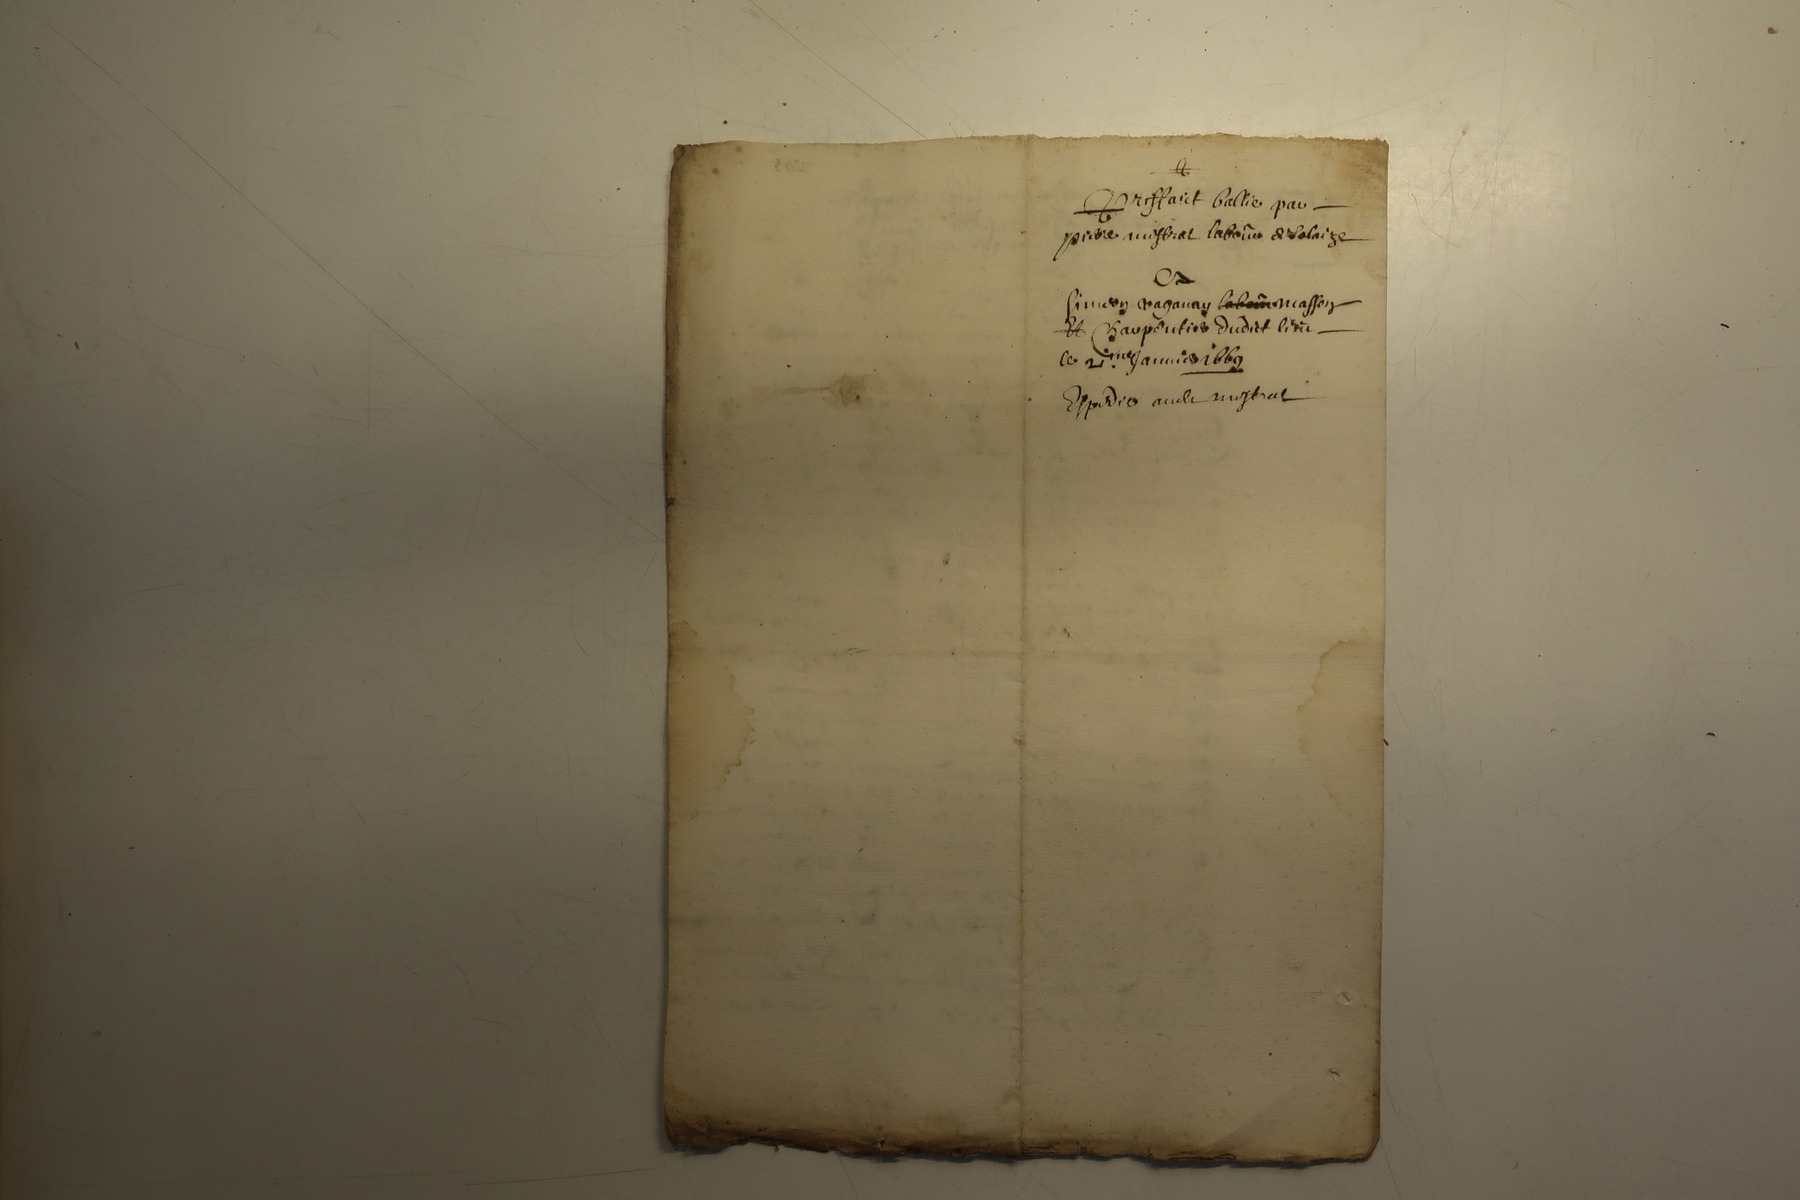 Prisffaict ballie par
pierre mistral labour de solaize
Et
Simeon vaganay labour masson
Et Charpentier dudict lieu
le 2me Janvier 1669
Expedie audi mistral